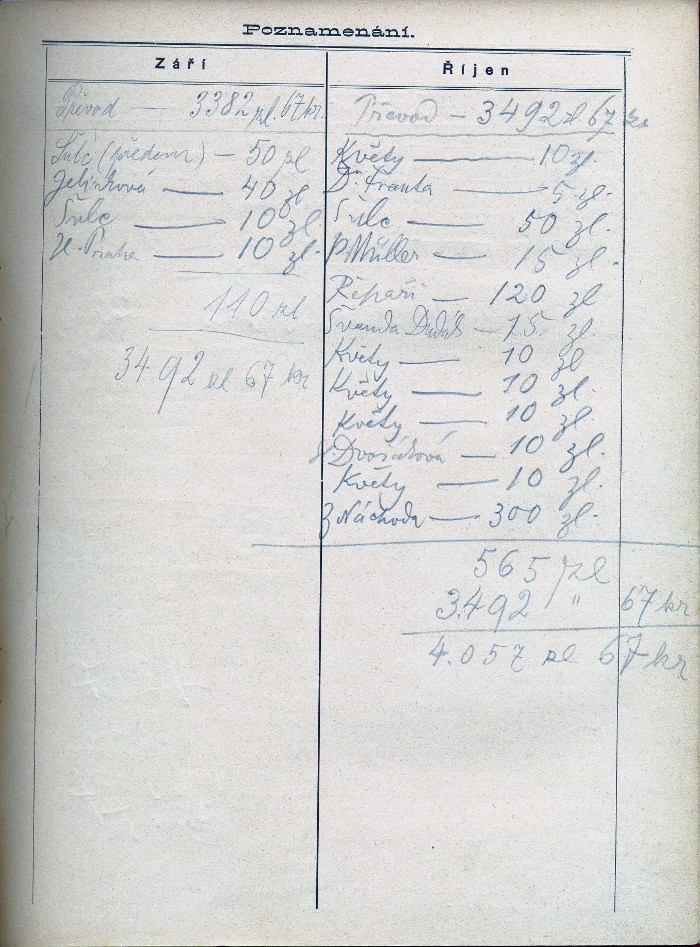 Poznamenání.
Září
Převod — 3382 zl. 67 kr.
Šulc (předem) — 50 zl
Jelínková — 40 zl
Šulc — 10 zl
H. Praha — 10 zl.
110 zl
3492 zl 67 kr
Říjen
Převod — 3492 zl 67 kr
Květy — 10 zl.
Dr. Franta — 5 zl.
Šulc — 50 zl.
P. Müller — 15 zl.
Řepaři — 120 zl
Švanda Dudák — 15 zl.
Květy — 10 zl
Květy — 10 zl.
Květy — 10 zl.
Dvořáková — 10 zl.
Květy — 10 zl.
Z Náchoda — 300 zl.
565 zl
3.492 " 67 kr
4.057 zl 67 kr